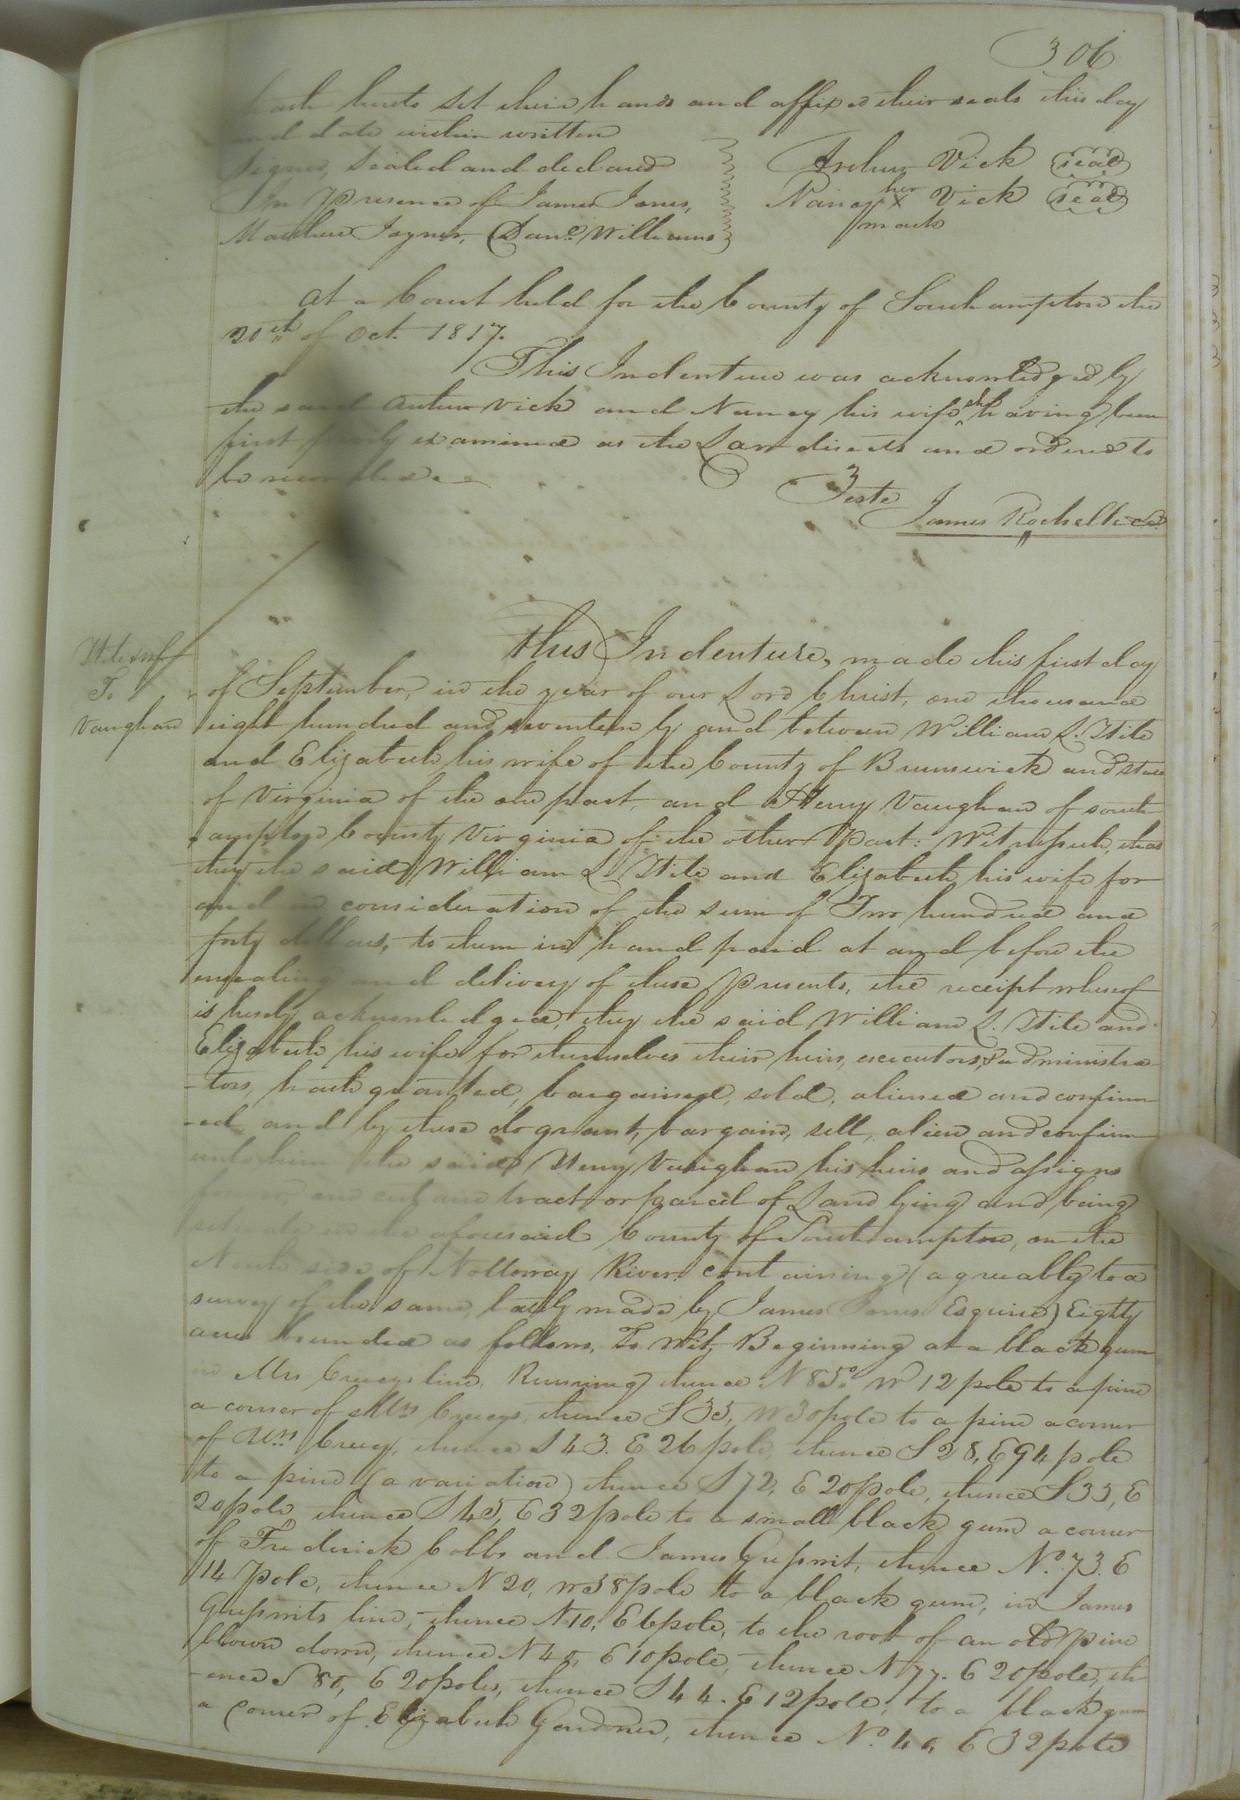 306
hath hereto set their hands and affixed their seals this day
and date within written
Signed, Sealed and declared
In presence of James Jones,
Matthew Joyner, Danl. Williams
Arthur Vick seal
Nancy her X mark Vick seal
At a Court held for the County of Southampton the
20th of Oct. 1817.
This Indenture was acknowledged by
the said Arthur Vick and Nancy his wife she having been
first privily examined as the Law directs and ordered to
be recorded.
Teste
James Rochelle Cl.
Hite & wife
To
Vaughan
This Indenture, made this first day
of September, in the year of our Lord Christ, one thousand
eight hundred and seventeen by and between William L. Hite
and Elizabeth his wife of the County of Brunswick and State
of Virginia of the one part, and Henry Vaughan of South
-ampton County Virginia of the other Part: Witnesseth, that
they the said William L. Hite and Elizabeth his wife for
and in consideration of the sum of Two hundred and
forty dollars, to them in hand paid at and before the
ensealing and delivery of these presents, the receipt whereof
is hereby acknowledged, they the said William L. Hite and
Elizabeth his wife for themselves their heirs, executors, & administra
-tors, hath granted, bargained, sold, aliened and confirm
-ed and by these do grant, bargain, sell, alien and confirm
unto him the said Henry Vaughan his heirs and assigns
forever, one certain tract or parcel of Land lying and being
situate in the aforesaid County of Southampton, on the
North side of Nottoway River, containing (agreeably to a
survey of the same, lately made by James Jones Esquire) Eighty
acres bounded as follows, To Wit, Beginning at a black gum
in Mrs Creeys line, Running thence N 85° W 12 pole to a pine
a corner of Mrs Creeys, thence S 35, W 30 pole to a pine a corner
of Mrs Creey, thence S 43. E 26 pole, thence S 28, E 94 pole
to a pine (a variation) thence S 72, E 20 pole, thence S 35, E
20 pole, thence S 45, E 32 pole to a small black gum a corner
of Frederick Cobbs and James Gupwit, thence No. 73. E
14 pole, thence N 20, W 38 pole to a black gum, in James
Gupwits line, thence N 10, E 6 pole, to the root of an old pine
blown down, thence N 40, E 10 pole, thence N 77. E 20 pole, th
-ence S 80, E 20 poles, thence S 44. E 12 pole, to a black gum
a corner of Elizabeth Gardner, thence No. 40, E 32 pole